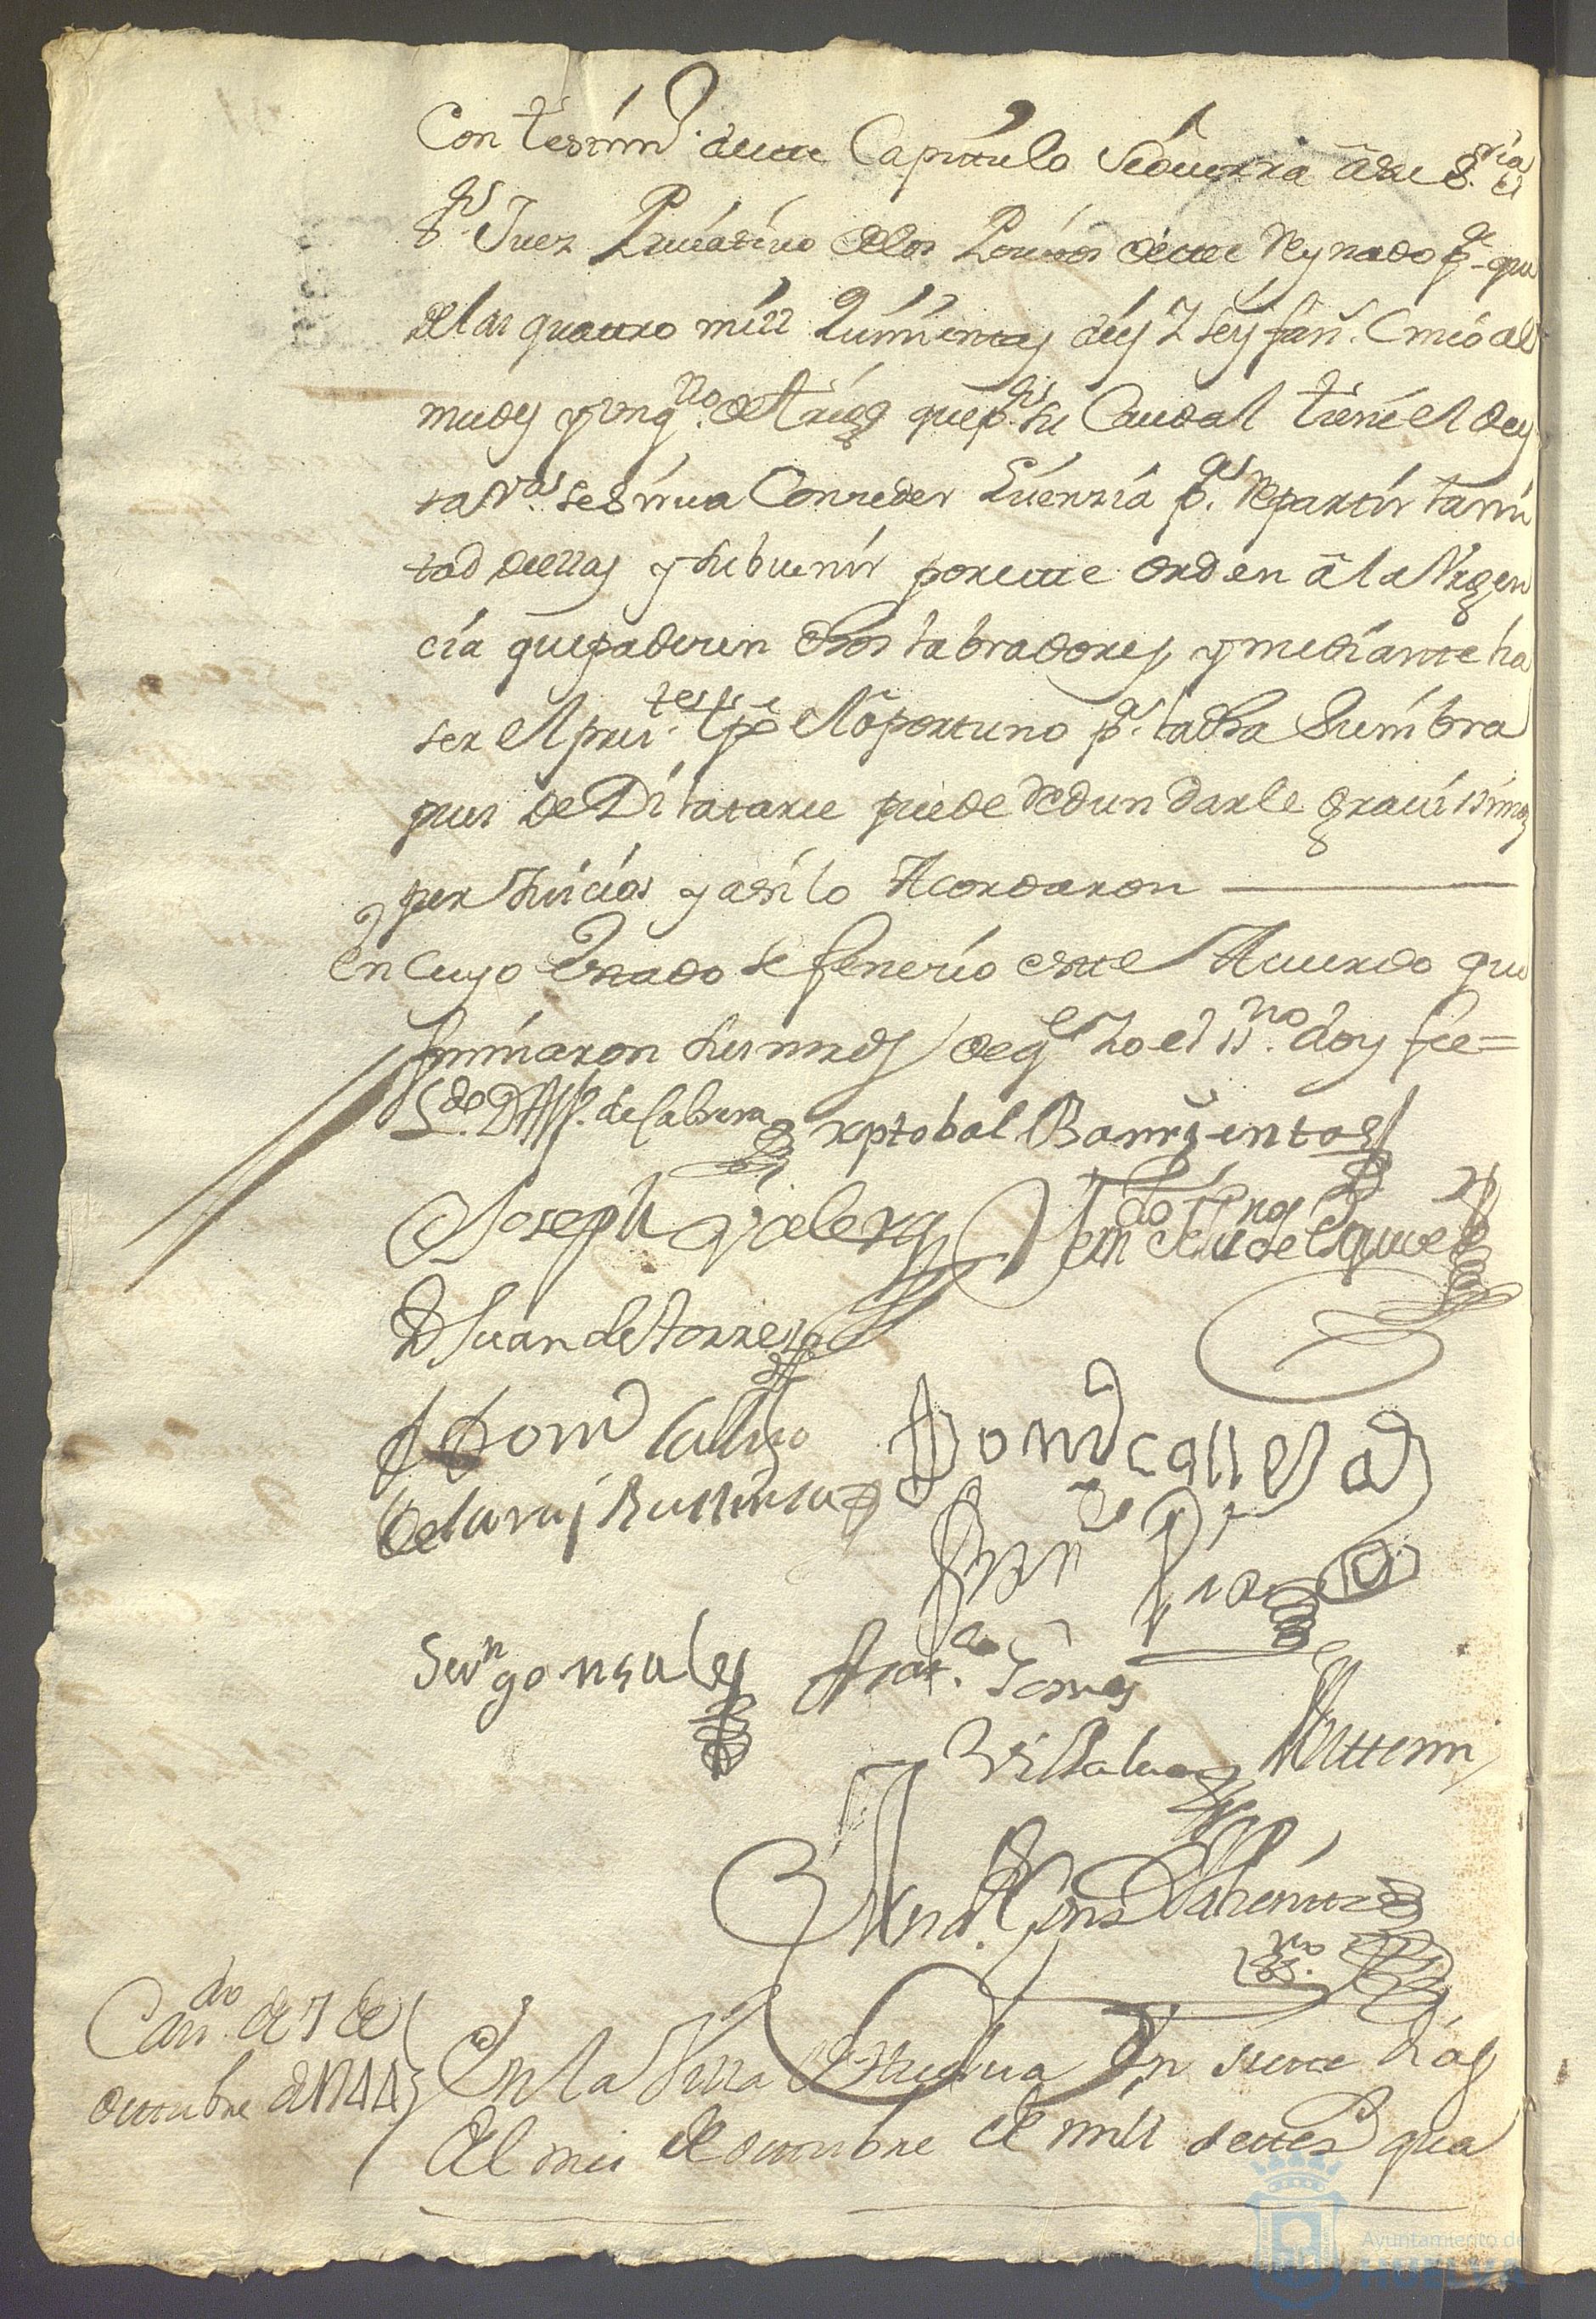 Con testim.o deste Capitulo Se ocurra a su S.ria el
S.or Juez Privativo de los Positos deeste Reynado p.a que
de las quatro mill quinientas diez y seis fan.s Cinco al
mudes y un q.llo de trigo que p.r su Caudal tiene el de es
ta V.a se sirva Conceder lizenzia p.a repartir la mi
tad de ellas y subvenir por este orden â la Urgen
cia que padecen dhos labradores, y mediante ha
ser el pres.te tpo el oportuno p.a la dha Siembra
pues de Dilatarse puede redundarle gravissimos
perjuicios y asi lo Acordaron
En cuyo Estado se fenecio este Acuerdo que
firmaron sus mrds de q.e Yo el ss.no doy fee=
L.do D. Al.o de Cabrera xptobal Barrientos
Joseph Valera
de Esquivel
D Juan de torres
Dom.o Calvo Dom.o
Fran.co
Sev.n gonsales Fran.co Gomes
Villalva
Ante mi
ss.no
Cav.do de 7 de
octubre de 1744
En la Villa de Huelva En siete dias
del mes de octubre de mill settez.s qua
Ayuntamiento de
HUELVA